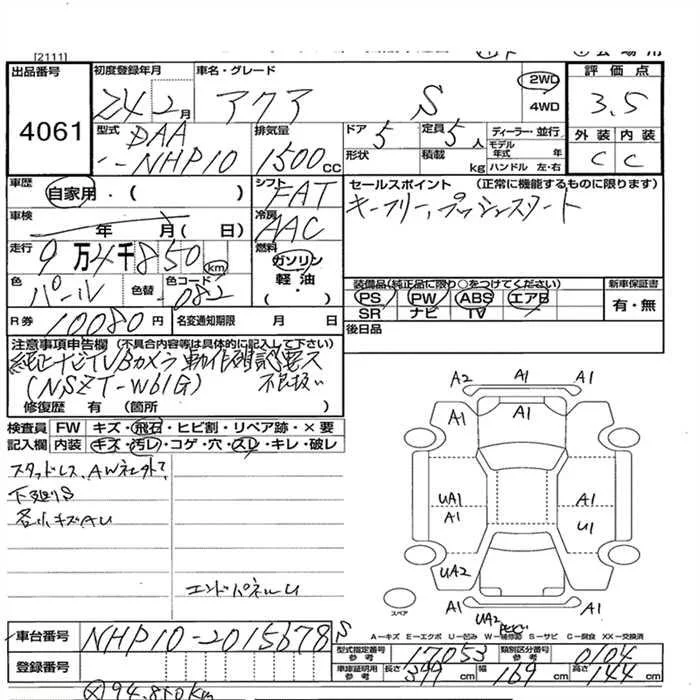 [2111]
出品番号 初度登録年月 車名・グレード 2WD 評価点
4061 24 2月 アクア S 4WD 3.5
型式 DAA 排気量 ドア 5 定員 5人 ディーラー・並行 外装 内装
NHP10 1500cc 形状 積載 kg モデル年式 年 C C
ハンドル 左・右
車歴 自家用・( ) シフト FAT セールスポイント (正常に機能するものに限ります)
車検 年 月( 日) 冷房 AAC キーフリー、プッシュスタート
走行 9万4千850km 燃料 ガソリン
軽油
(・)
色 パール 色替 色コード 082 装備品(純正品に限り○をつけてください) 新車保証書
PS PW ABS エアB 有・無
SR ナビ TV
R券 10080円 名変通知期限 月 日 後日品
注意事項申告欄 (不具合内容等は具体的に記入して下さい)
純正ナビTV Bカメラ 動作確認要ス
(NSZT-W61G) 不良扱い
修復歴 有 (箇所 )
検査員 FW キズ・飛石・ヒビ割・リペア跡・×要
記入欄 内装 キズ・汚レ・コゲ・穴・スレ・キレ・破レ
スタッドレス、AW社外
下廻りS
各小キズAU
エンドパネルU
A2 A1 A1
A1
A1
UA1 A1
A1 U1
UA2
A1 UA2 A1
スペア
A−キズ E−エクボ U−凹み W−補修跡 S−サビ C−腐食 XX−交換済
車台番号 NHP10-2015678 S
型式指定番号 参考 17053 類別区分番号 参考 0104
登録番号 車庫証明用 参考 長さ 399cm 幅 169cm 高さ 144cm
94.850km